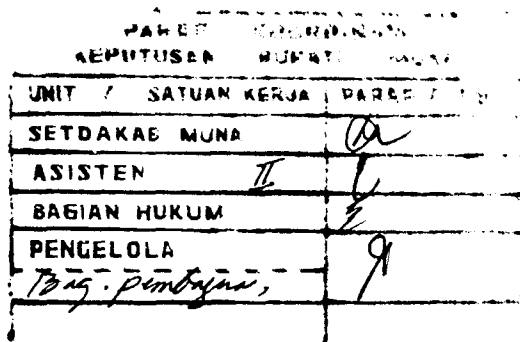 PARAF KOORDINASI
KEPUTUSAN BUPATI MUNA
UNIT / SATUAN KERJA PARAF /
SETDAKAB MUNA
ASISTEN II
BAGIAN HUKUM
PENGELOLA
Bag.